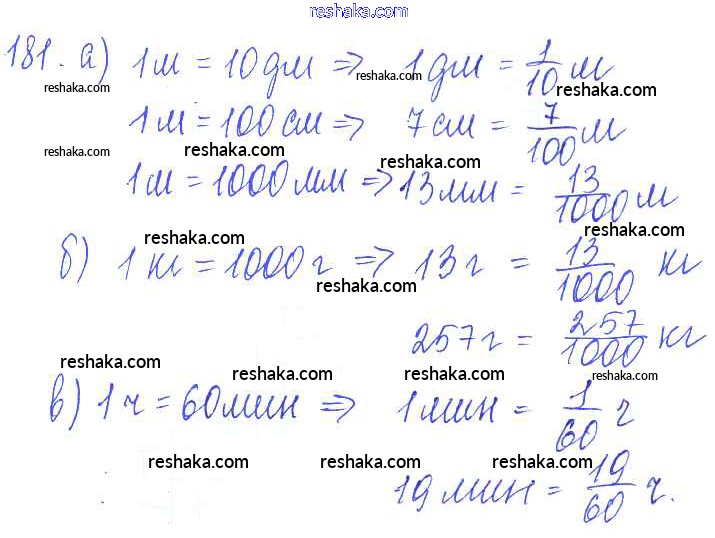 reshaka.com
181. а) 1м = 10дм => 1дм = 1/10 м
reshaka.com reshaka.com reshaka.com
1м = 100см => 7см = 7/100 м
reshaka.com reshaka.com reshaka.com
1м = 1000мм => 13мм = 13/1000 м
reshaka.com
б) 1кг = 1000г => 13г = 13/1000 кг
reshaka.com
257г = 257/1000 кг
reshaka.com reshaka.com reshaka.com reshaka.com
в) 1ч = 60мин => 1мин = 1/60 ч
reshaka.com reshaka.com reshaka.com
19мин = 19/60 ч.